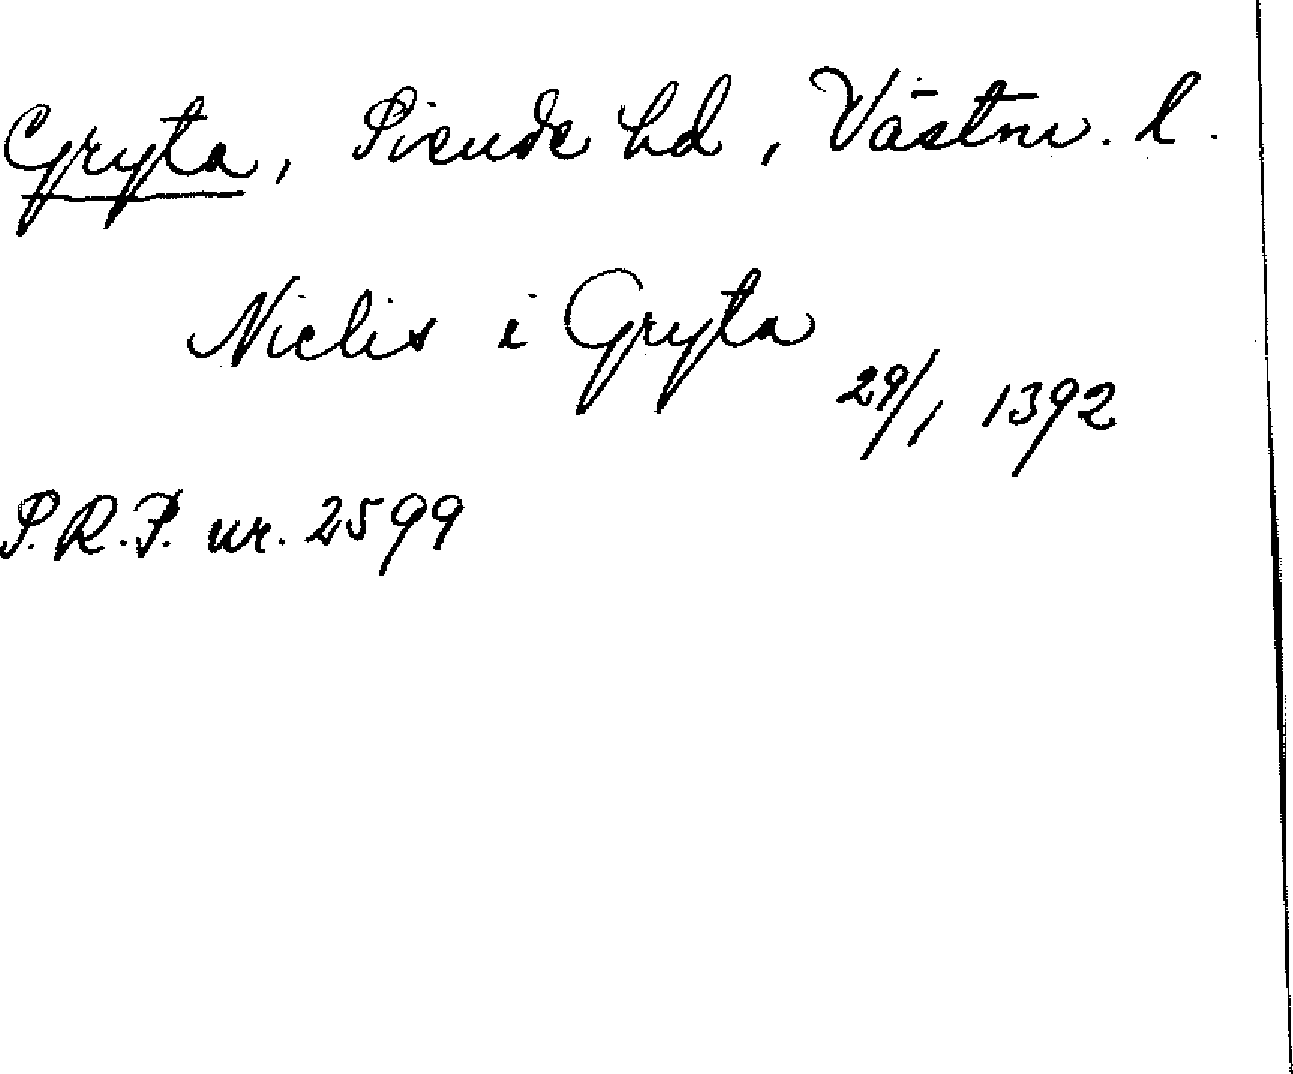 Gryta, Siende hd, Västm. l.
Niclis i Gryta
29/1 1392
S.R.P. nr. 2599